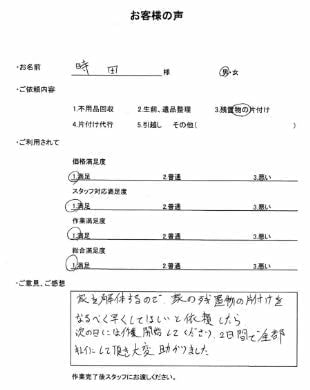 お客様の声
・お名前 時田 様 男・女
・ご依頼内容
1.不用品回収 2.生前、遺品整理 3.残置物の片付け
4.片付け代行 5.引越し その他( )
・ご利用されて
価格満足度
1.満足 2.普通 3.悪い
スタッフ対応満足度
1.満足 2.普通 3.悪い
作業満足度
1.満足 2.普通 3.悪い
総合満足度
1.満足 2.普通 3.悪い
・ご意見、ご感想
家を解体するので、家の残置物の片付けを
なるべく早くしてほしいと依頼したら
次の日には作業開始してくださり、2日間で全部
きれいにして頂き大変助かりました
作業完了後スタッフにお渡しください。